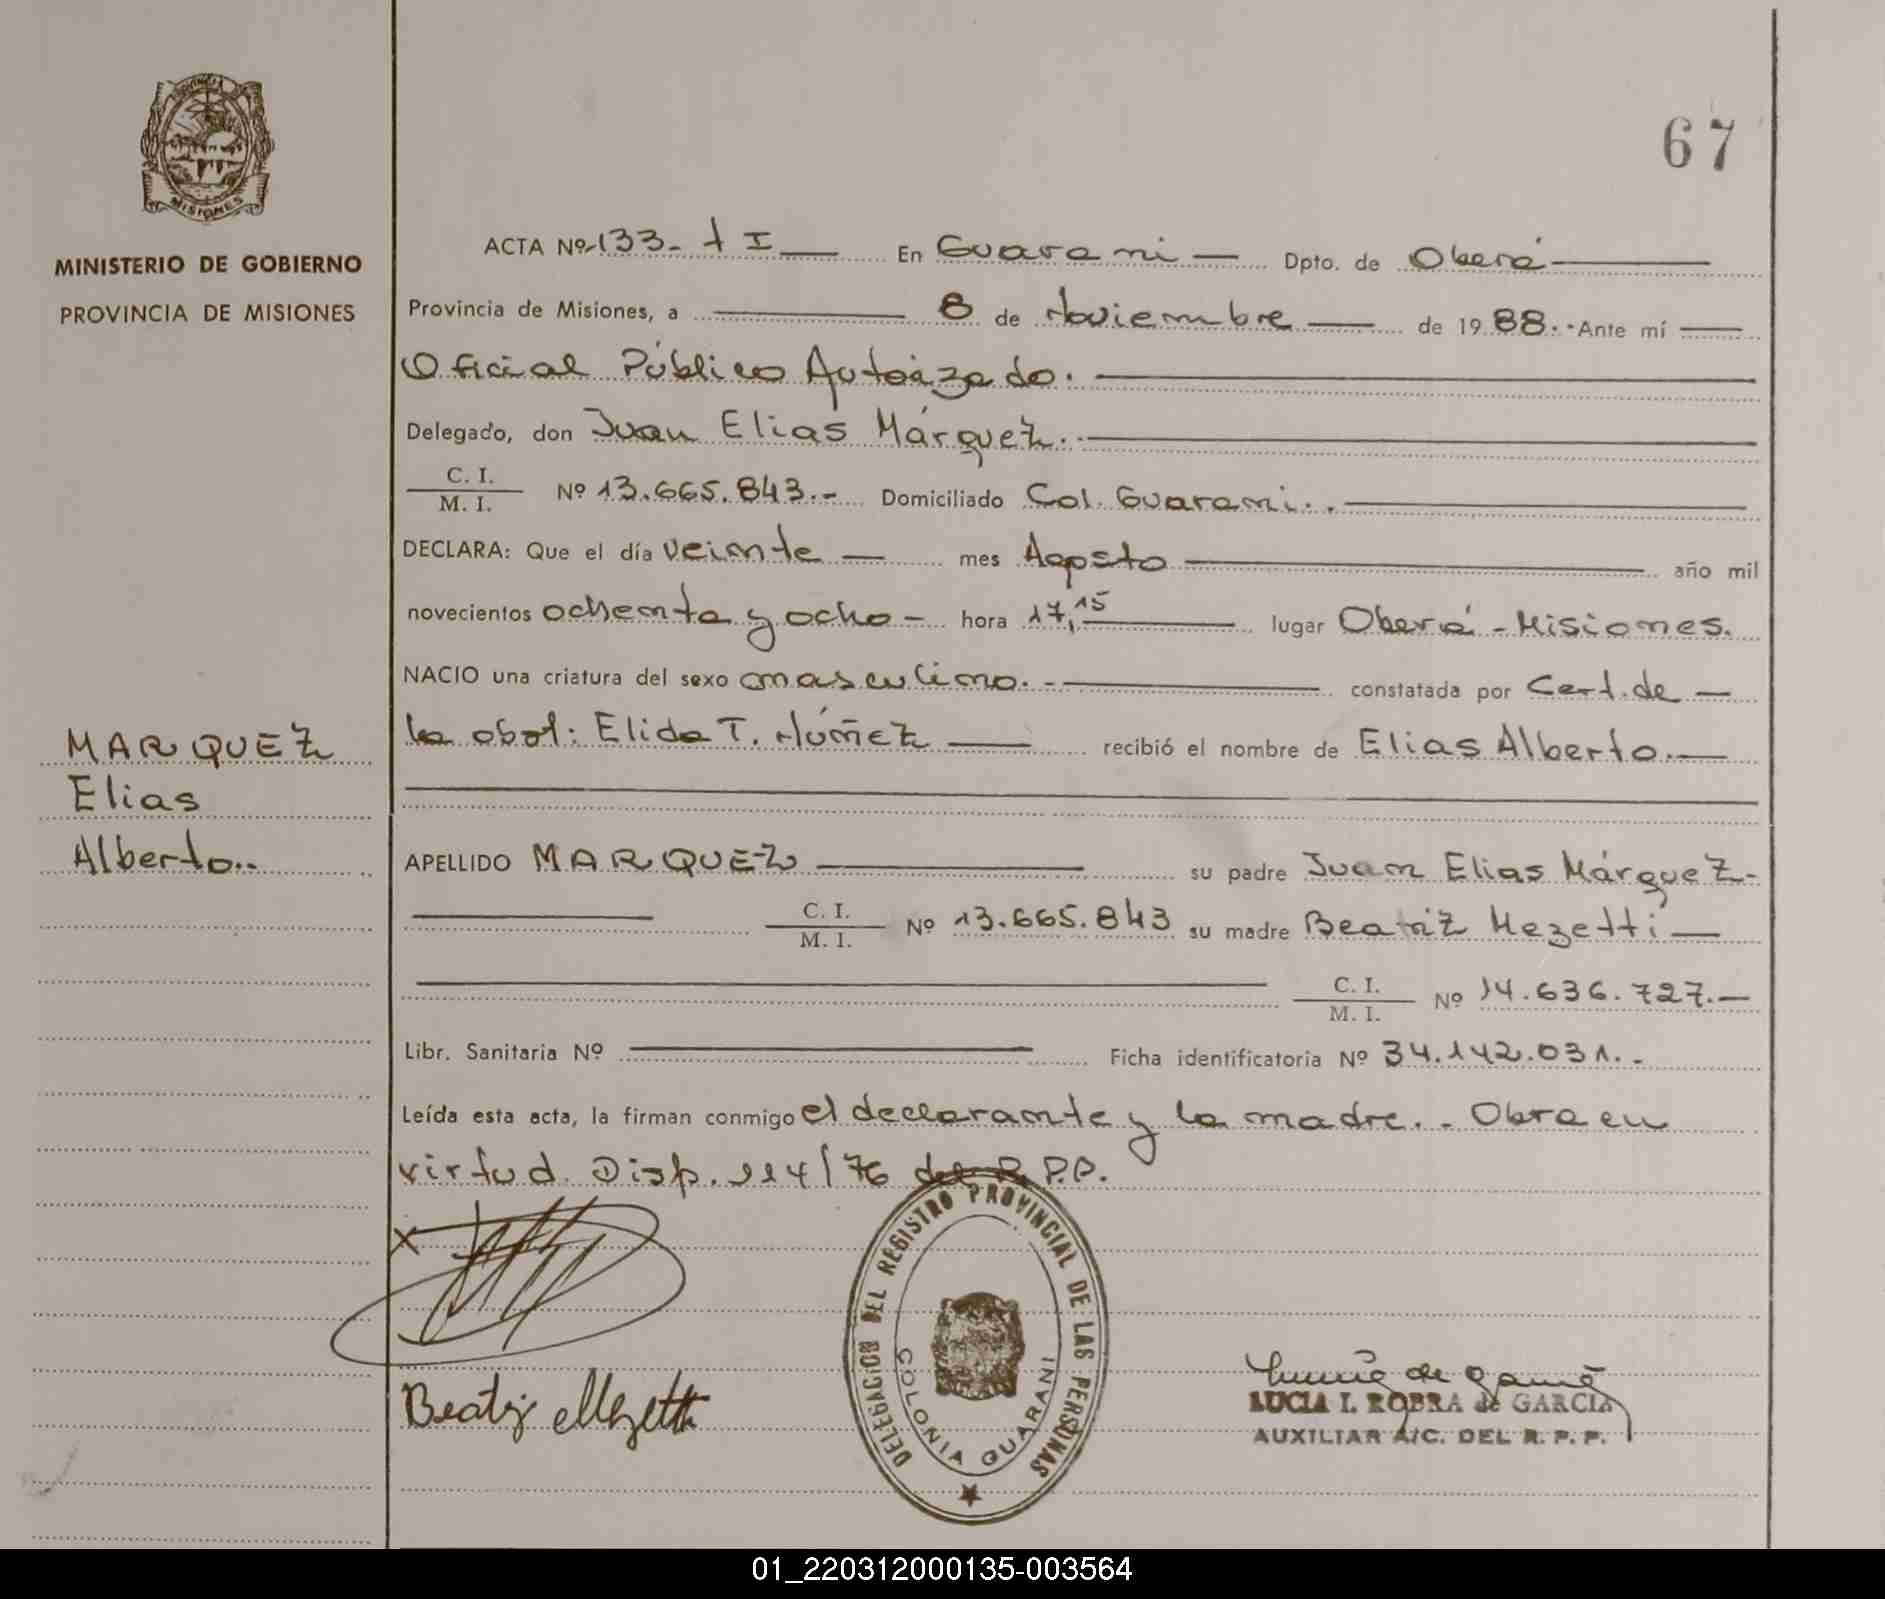 67
PROVINCIA
MISIONES
MINISTERIO DE GOBIERNO
PROVINCIA DE MISIONES
ACTA Nº 133 - t I — En Guarani — Dpto. de Oberá —
Provincia de Misiones, a — 8 de Noviembre — de 19 88.- Ante mí —
Oficial Público Autorizado. —
Delegado, don Juan Elias Márquez.- —
C. I.
M. I. Nº 13.665.843.- Domiciliado Col. Guarani.. —
DECLARA: Que el día veinte — mes Agosto — año mil
novecientos ochenta y ocho - hora 17,15 — lugar Oberá - Misiones.
NACIO una criatura del sexo masculino. - — constatada por Cert. de —
la obst: Elida T. Núñez — recibió el nombre de Elias Alberto. —
MARQUEZ
Elias
Alberto..
APELLIDO MARQUEZ — su padre Juan Elias Márquez -
— C. I.
M. I. Nº 13.665.843 su madre Beatriz Mezetti —
— C. I.
M. I. Nº 14.636.727. —
Libr. Sanitaria Nº — Ficha identificatoria Nº 34.142.031. -
Leída esta acta, la firman conmigo el declarante y la madre. - Obra en
virtud Disp. 224/76 del R.P.P.
X
Beatriz Mezetti
DELEGACION DEL REGISTRO PROVINCIAL DE LAS PERSONAS
COLONIA GUARANI
LUCIA I. ROBRA de GARCIA
AUXILIAR A/C. DEL R. P. P.
01_220312000135-003564